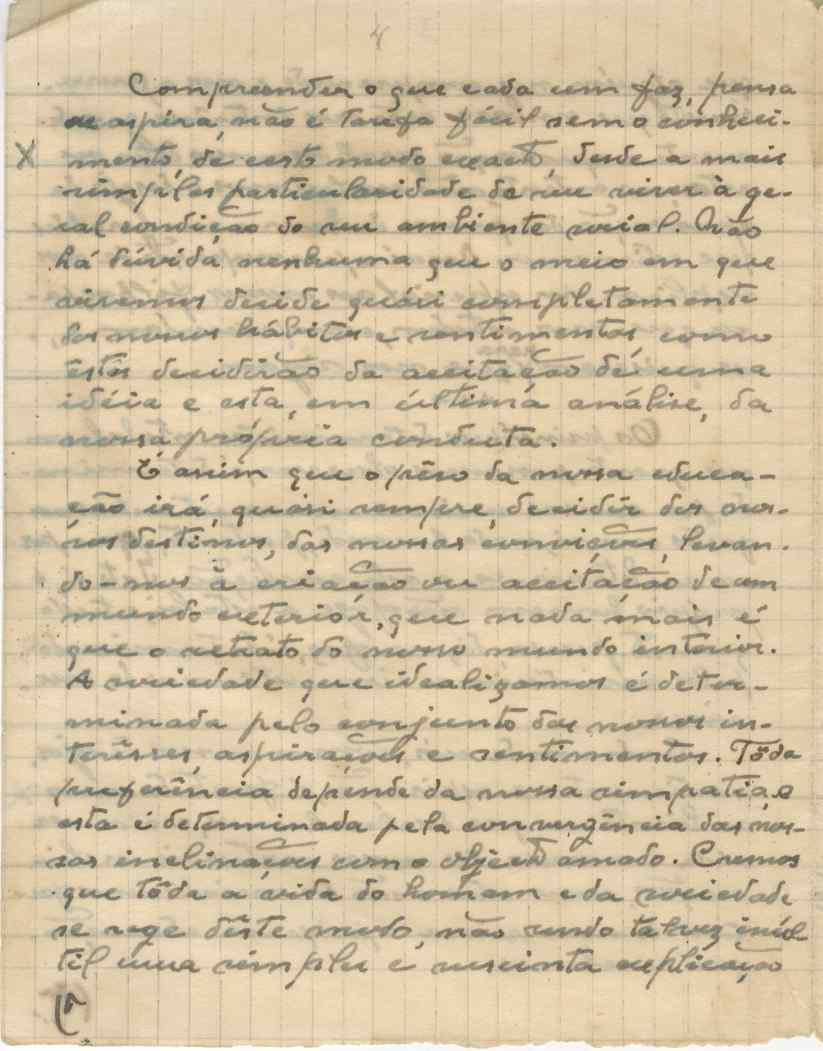 4
Compreender o que cada um faz, pensa
ou aspira, não é tarefa fácil sem o conheci-
X mento, de certo modo exacto, desde a mais
simples particularidade de seu viver à ge-
ral condição do seu ambiente social. Não
há dúvida nenhuma que o meio em que
vivemos decide quási completamente
dos nossos hábitos e sentimentos, como
êstes decidirão da aceitação de uma
idéia e esta, em última análise, da
nossa própria conduta.
É assim que o pêso da nossa educa-
ção irá, quási sempre, decidir dos nos-
sos destinos, das nossas convicções, levan-
do-nos à criação ou aceitação de um
mundo exterior, que nada mais é
que o retrato do nosso mundo interior.
A sociedade que idealizamos é deter-
minada pelo conjunto dos nossos in-
terêsses, aspirações e sentimentos. Tôda
preferência depende da nossa simpatia e
esta é determinada pela convergência das nos-
sas inclinações com o objecto amado. Cremos
que tôda a vida do homem e da sociedade
se rege dêste modo, não sendo talvez inú-
til uma simples e sucinta explicação